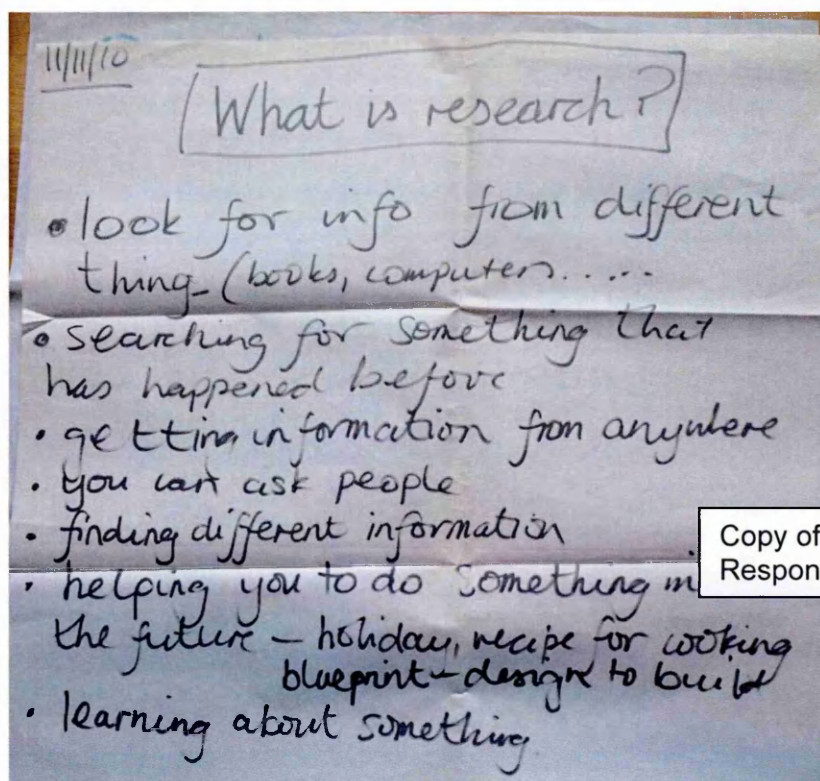 11/11/10
What is research?
• look for info from different
thing_ (books, computers.....
• searching for something that
has happened before
• getting information from anywhere
• you can ask people
• finding different information
Copy of
Respon
• helping you to do something in
the future – holiday, recipe for cooking
blueprint – designs to build
• learning about something